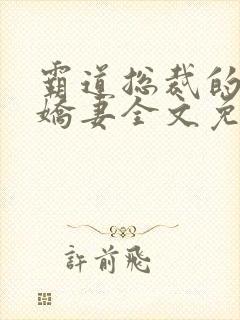 霸道总裁的
娇妻全文免
許前飛